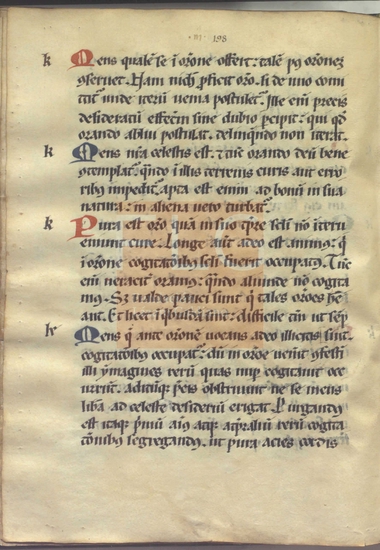 ·m· 198
k Mens qualē se ī orōne offert: talē p9 orōnez
9servet. Nam nichil pficit orō. si de uno comi
titr̄ unde iterū uenia postulet̄. Ille enī precis
desideratū effectū sine dubio pcipit: qui qd
orando ablui postulat. delinquēdo non iterat.
k Mens nr̄a celestis est. 7 tūc orando deū bene
9templat̄. qn̄do ī illis terrenis curis aut erro
rib9 impedit̄. apta est enim ad bonū in sua
natura: in aliena uero turbat̄.
k Pura est orō quā in suo tp̄re sclī nō iteru
eniunt cure. Longe aut̄ a deo est anim9: q̄
ī orōne cogitatōib9 sclī fuerit occupat9. Tūc
em̄ ueracit̄ oram9: qn̄do aliunde nō cogita
m9. Sz ualde pauci sunt q̄ tales orōes he
ant. Et licet ī q̄busdā sint: difficile tn̄ ut sēp
lv Mens q̄ ante orōnē uocans a deo illicitis sunt
cogitatōib9 occupat̄: dū in orōe uenit 9festī
illi ymagines rerū quas nup cogitauit occ
urrent. aditūq; p̄cis obstruunt ne se mens
liba ad celeste desideriū erigat. Purgand9
est itaq; p̄mū ai9 atq; a tp̄raliū rerū cogita
tōnib9 segregand9. ut pura acies cordis